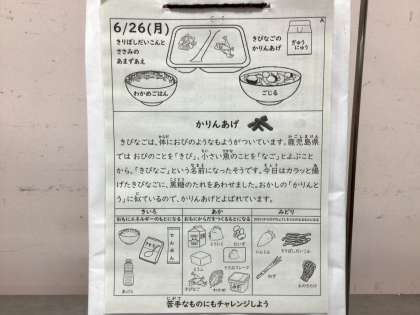 6/26(月)
きりぼしだいこんと
ささみの
あまずあえ
きびなごの
かりんあげ
ぎゅう
にゅう
わかめごはん
ごじる
かりんあげ
きびなごは、体におびのようなもようがついています。鹿児島県
では おびのことを「きび」、小さい魚のことを「なご」とよぶこと
から、「きびなご」という名前になったそうです。今日はカラッと揚
げたきびなごに、黒糖のたれをあわせました。おかしの「かりんと
う」に似ているので、かりんあげとよばれています。
きいろ
あか
みどり
おもにエネルギーのもとになる
おもにからだをつくるもとになる
でんぷん
とうふ
だいず
きびなご
わかめ
にんじん
ねぎ
苦手なものにもチャレンジしよう